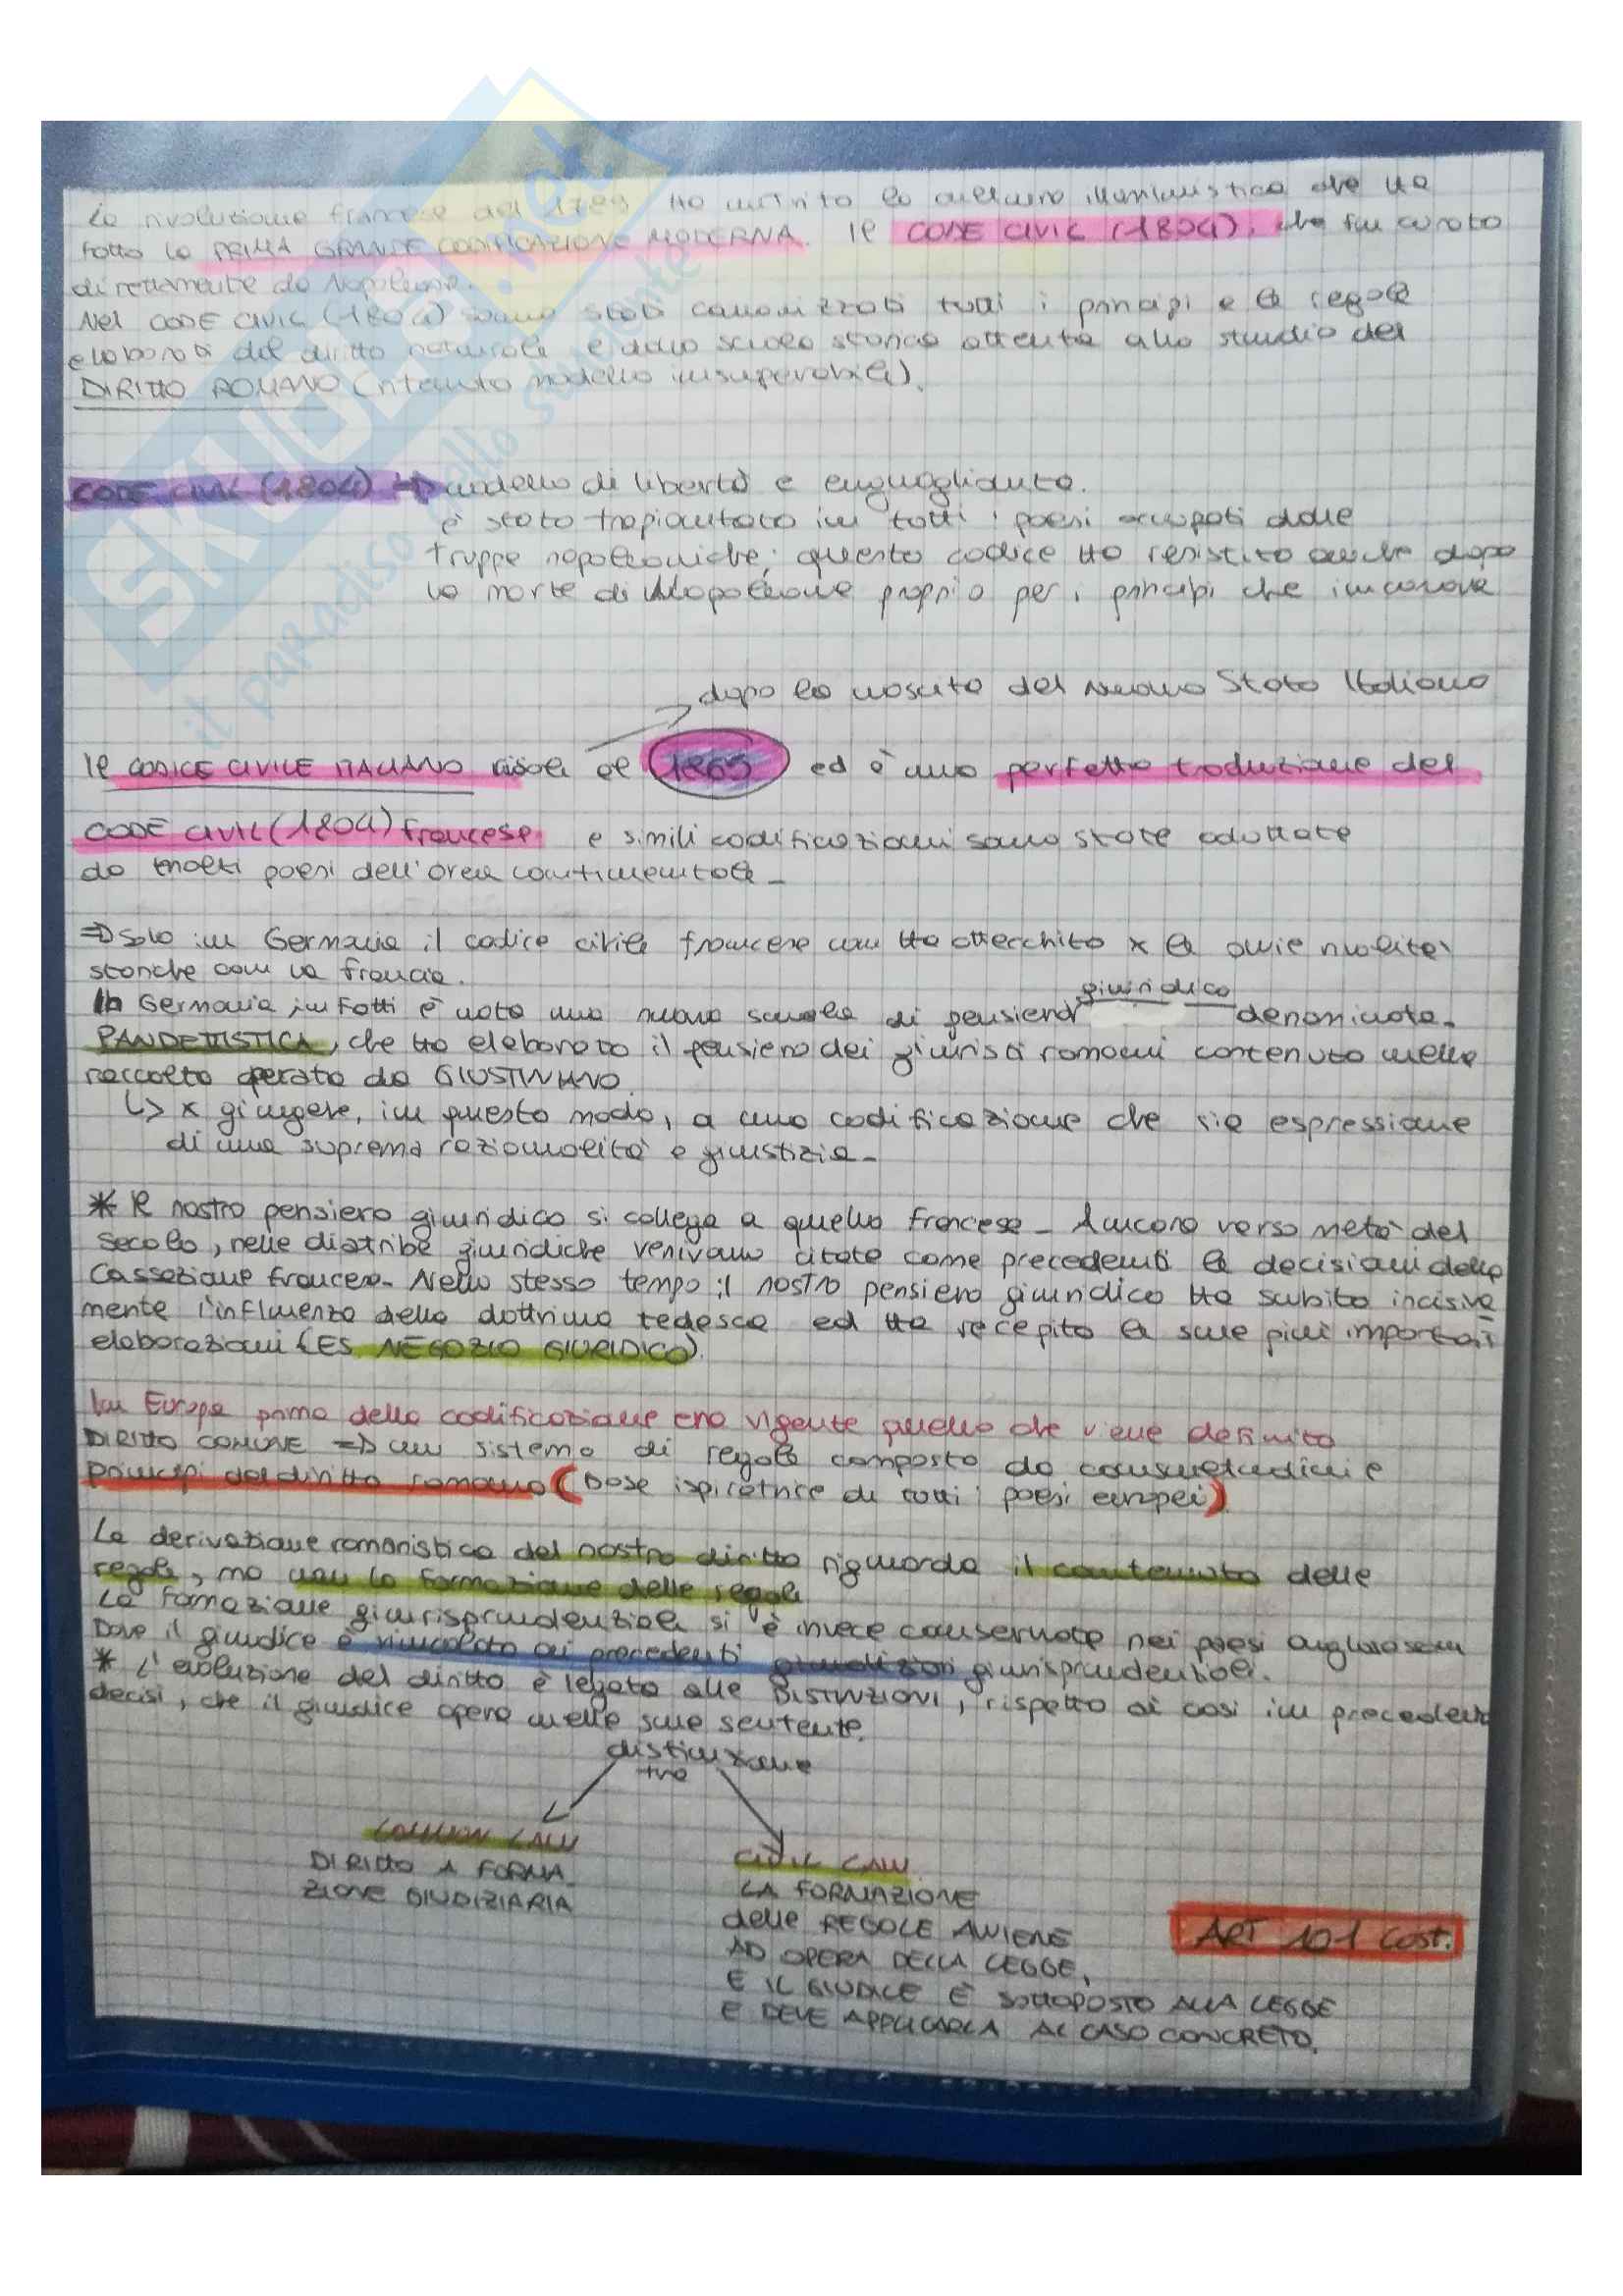 La rivoluzione francese del 1789 ha nutrito la cultura illuministica che ha
fatto la PRIMA GRANDE CODIFICAZIONE MODERNA. Il CODE CIVIL (1804), che fu curato
direttamente da Napoleone.
Nel CODE CIVIL (1804) sono stati canonizzati tutti i principi e le regole
elaborati dal diritto naturale e dalla scuola storica attenta allo studio del
DIRITTO ROMANO (ritenuto modello insuperabile).
CODE CIVIL (1804) => modello di libertà e eguaglianza.
è stato trapiantato in tutti i paesi occupati dalle
truppe napoleoniche; questo codice ha resistito anche dopo
la morte di Napoleone proprio per i principi che incarnava
dopo la nascita del nuovo Stato Italiano
Il CODICE CIVILE ITALIANO risale al 1865 ed è una perfetta traduzione del
CODE CIVIL (1804) francese e simili codificazioni sono state adottate
da molti paesi dell'area continentale_
=> Solo in Germania il codice civile francese non ha attecchito x le varie rivalità
storiche con la Francia.
In Germania infatti è nata una nuova scuola di pensiero giuridico denominata
PANDETTISTICA, che ha elaborato il pensiero dei giuristi romani contenuto nella
raccolta operata da GIUSTINIANO
↳ x giungere, in questo modo, a una codificazione che sia espressione
di una suprema razionalità e giustizia_
* Il nostro pensiero giuridico si collega a quello francese_ Ancora verso metà del
secolo, nelle diatribe giuridiche venivano citate come precedenti le decisioni della
Cassazione francese_ Nello stesso tempo il nostro pensiero giuridico ha subito incisiva
mente l'influenza della dottrina tedesca ed ha recepito le sue più importanti
elaborazioni (ES. NEGOZIO GIURIDICO).
In Europa prima della codificazione era vigente quello che viene definito
DIRITTO COMUNE => un sistema di regole composto da consuetudini e
principi del diritto romano (base ispiratrice di tutti i paesi europei)
La derivazione romanistica del nostro diritto riguarda il contenuto delle
regole, ma non la formazione delle regole
La formazione giurisprudenziale si è invece conservata nei paesi anglosassoni
Dove il giudice è vincolato ai precedenti giudiziari giurisprudenziali.
* L'evoluzione del diritto è legata alle DISTINZIONI, rispetto ai casi in precedenza
decisi, che il giudice opera nelle sue sentenze.
distinzione
tra
COMMON LAW
DIRITTO A FORMA_
ZIONE GIUDIZIARIA
CIVIL LAW
LA FORMAZIONE
delle REGOLE AVVIENE
AD OPERA DELLA LEGGE,
E IL GIUDICE È SOTTOPOSTO ALLA LEGGE
E DEVE APPLICARLA AL CASO CONCRETO.
ART 101 Cost.
SKUOLA.net
il paradiso dello studente